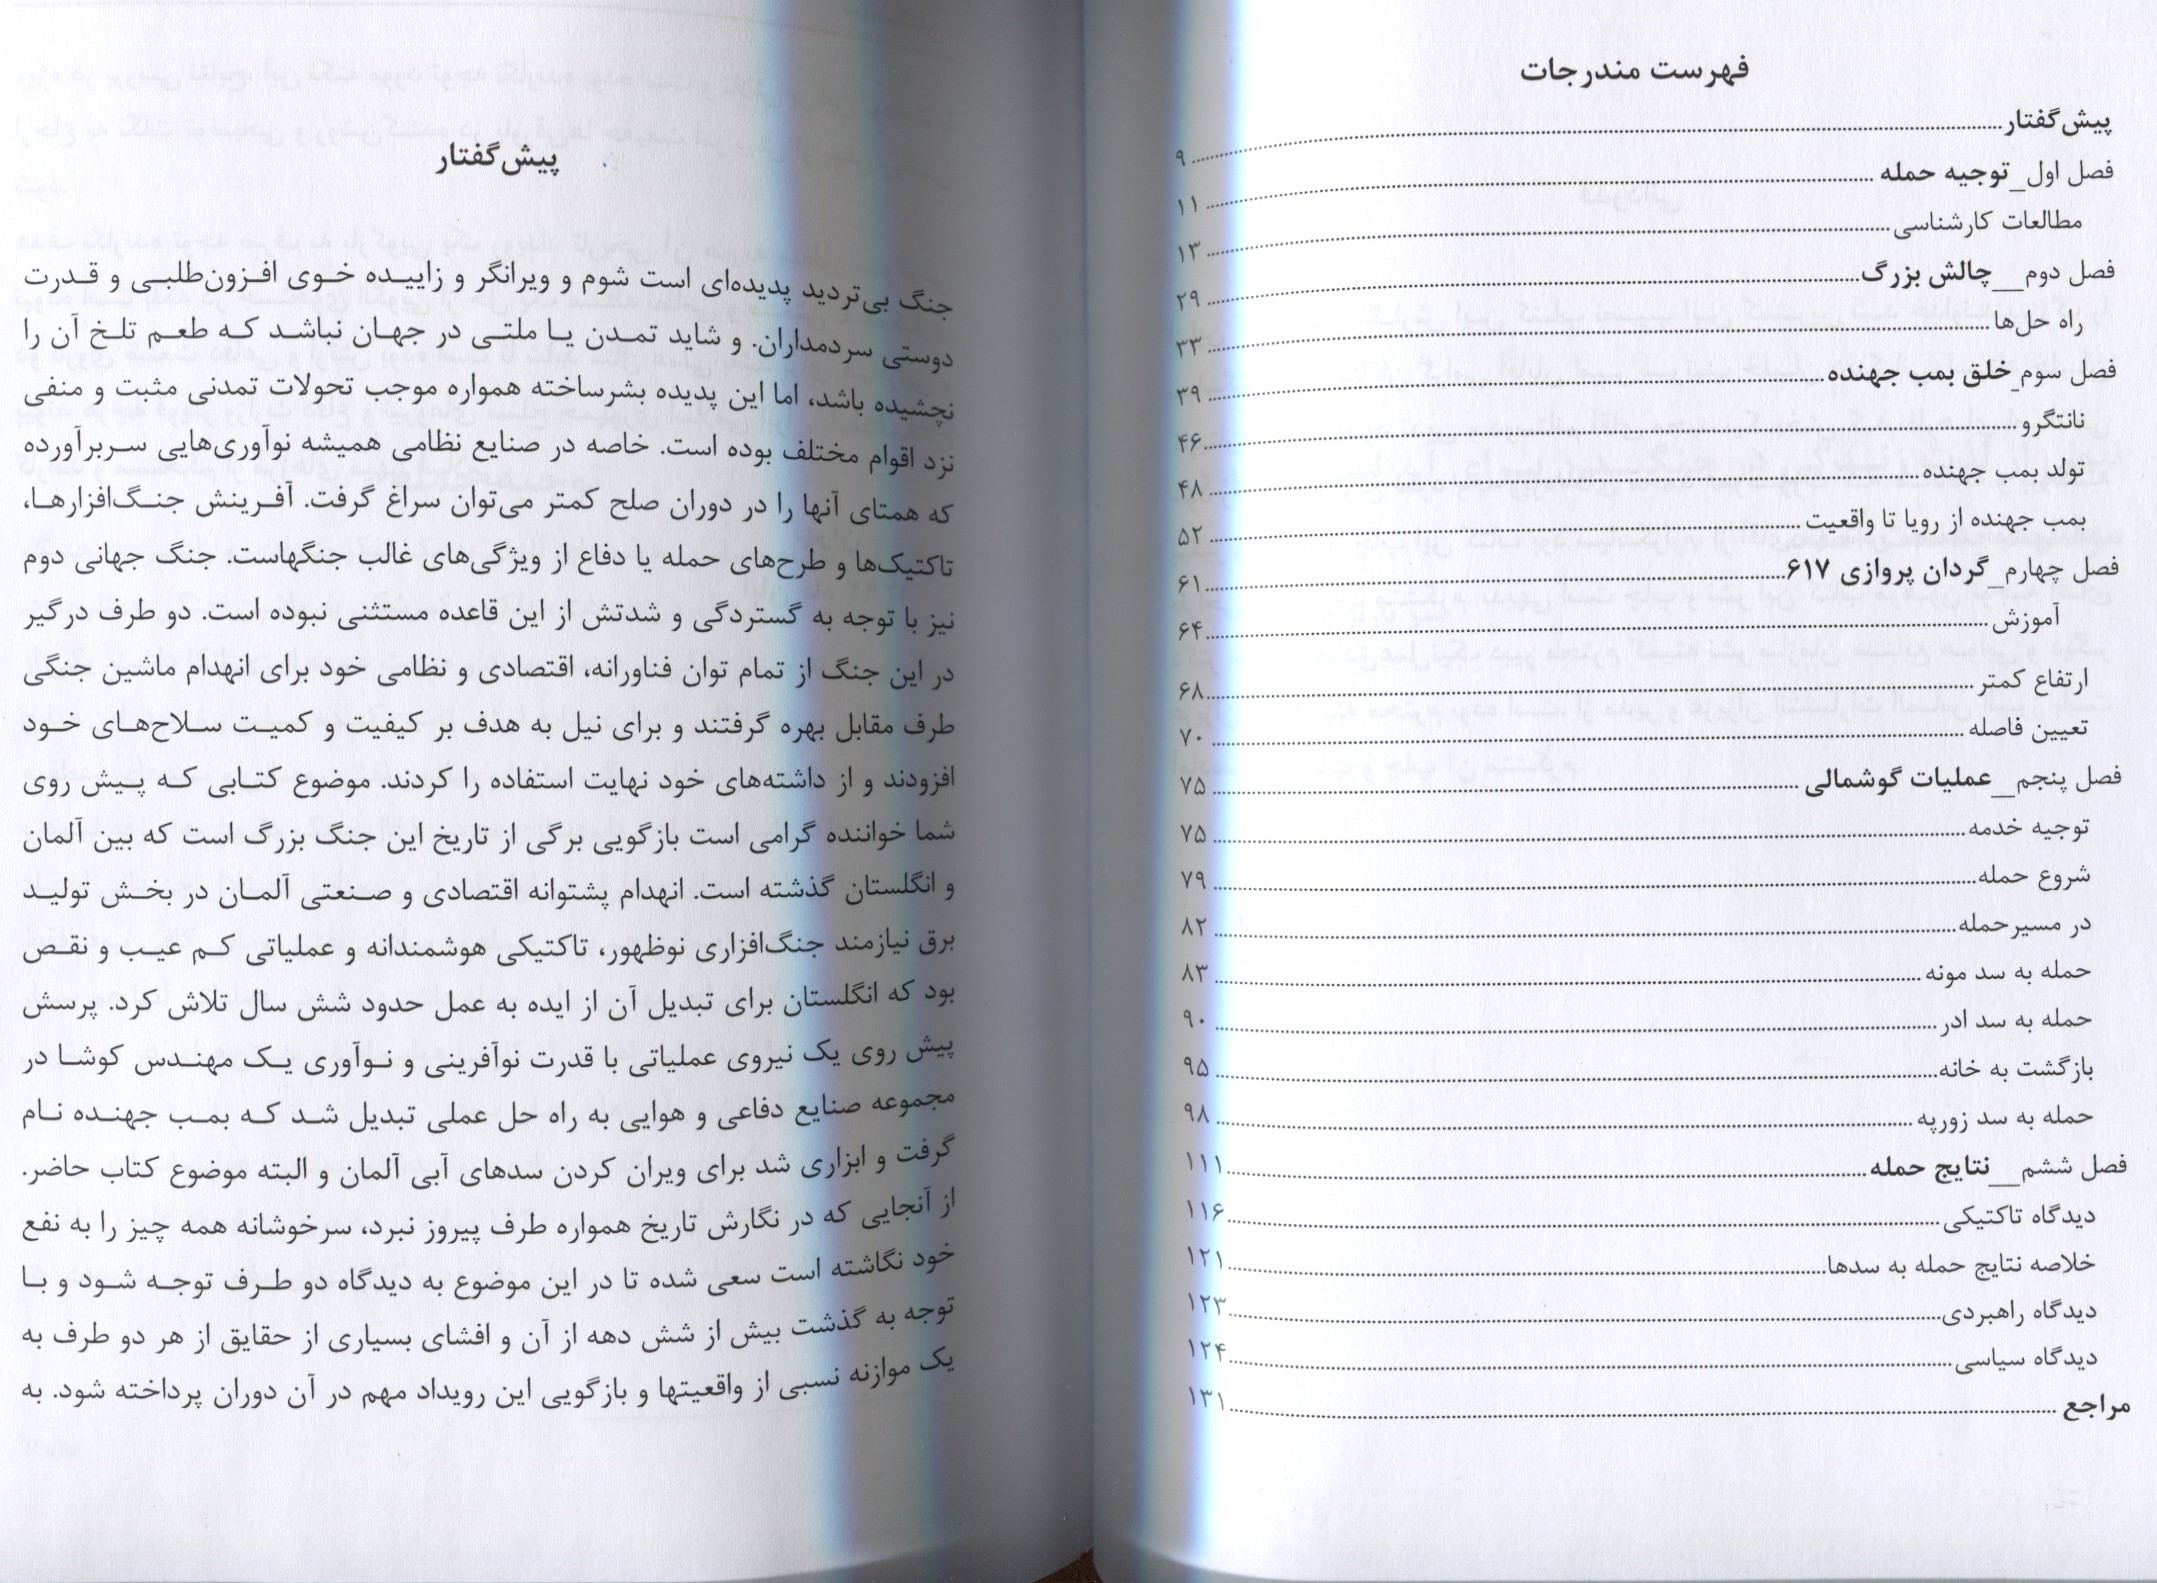 فهرست مندرجات
پیش‌گفتار ........ ۹
فصل اول_توجیه حمله ........ ۱۱
مطالعات کارشناسی ........ ۱۳
فصل دوم__چالش بزرگ ........ ۲۹
راه حل‌ها ........ ۳۳
فصل سوم_خلق بمب جهنده ........ ۳۹
نانتگرو ........ ۴۶
تولد بمب جهنده ........ ۴۸
بمب جهنده از رویا تا واقعیت ........ ۵۲
فصل چهارم_گردان پروازی ۶۱۷ ........ ۶۱
آموزش ........ ۶۴
ارتفاع کمتر ........ ۶۸
تعیین فاصله ........ ۷۰
فصل پنجم__عملیات گوشمالی ........ ۷۵
توجیه خدمه ........ ۷۵
شروع حمله ........ ۷۹
در مسیرحمله ........ ۸۲
حمله به سد مونه ........ ۸۳
حمله به سد ادر ........ ۹۰
بازگشت به خانه ........ ۹۵
حمله به سد زورپه ........ ۹۸
فصل ششم__نتایج حمله ........ ۱۱۱
دیدگاه تاکتیکی ........ ۱۱۶
خلاصه نتایج حمله به سدها ........ ۱۲۱
دیدگاه راهبردی ........ ۱۲۳
دیدگاه سیاسی ........ ۱۲۴
مراجع ........ ۱۳۱
پیش‌گفتار
جنگ بی‌تردید پدیده‌ای است شوم و ویرانگر و زاییده خوی افزون‌طلبی و قدرت
دوستی سردمداران. و شاید تمدن یا ملتی در جهان نباشد که طعم تلخ آن را
نچشیده باشد، اما این پدیده بشرساخته همواره موجب تحولات تمدنی مثبت و منفی
نزد اقوام مختلف بوده است. خاصه در صنایع نظامی همیشه نوآوری‌هایی سربرآورده
که همتای آنها را در دوران صلح کمتر می‌توان سراغ گرفت. آفرینش جنگ‌افزارها،
تاکتیک‌ها و طرح‌های حمله یا دفاع از ویژگی‌های غالب جنگهاست. جنگ جهانی دوم
نیز با توجه به گستردگی و شدتش از این قاعده مستثنی نبوده است. دو طرف درگیر
در این جنگ از تمام توان فناورانه، اقتصادی و نظامی خود برای انهدام ماشین جنگی
طرف مقابل بهره گرفتند و برای نیل به هدف بر کیفیت و کمیت سلاح‌های خود
افزودند و از داشته‌های خود نهایت استفاده را کردند. موضوع کتابی که پیش روی
شما خواننده گرامی است بازگویی برگی از تاریخ این جنگ بزرگ است که بین آلمان
و انگلستان گذشته است. انهدام پشتوانه اقتصادی و صنعتی آلمان در بخش تولید
برق نیازمند جنگ‌افزاری نوظهور، تاکتیکی هوشمندانه و عملیاتی کم عیب و نقص
بود که انگلستان برای تبدیل آن از ایده به عمل حدود شش سال تلاش کرد. پرسش
پیش روی یک نیروی عملیاتی با قدرت نوآفرینی و نوآوری یک مهندس کوشا در
مجموعه صنایع دفاعی و هوایی به راه حل عملی تبدیل شد که بمب جهنده نام
گرفت و ابزاری شد برای ویران کردن سدهای آبی آلمان و البته موضوع کتاب حاضر.
از آنجایی که در نگارش تاریخ همواره طرف پیروز نبرد، سرخوشانه همه چیز را به نفع
خود نگاشته است سعی شده تا در این موضوع به دیدگاه دو طرف توجه شود و با
توجه به گذشت بیش از شش دهه از آن و افشای بسیاری از حقایق از هر دو طرف به
یک موازنه نسبی از واقعیتها و بازگویی این رویداد مهم در آن دوران پرداخته شود. به